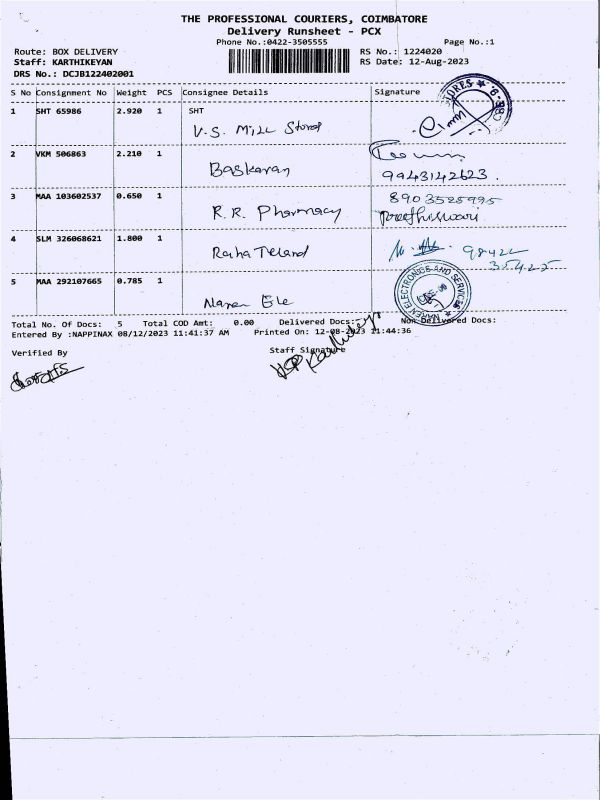 THE PROFESSIONAL COURIERS, COIMBATORE
Delivery Runsheet - PCX
Phone No.:0422-3505555 Page No.:1
Route: BOX DELIVERY RS No.: 1224020
Staff: KARTHIKEYAN RS Date: 12-Aug-2023
DRS No.: DCJB122402001
S No Consignment No Weight PCS Consignee Details Signature
1 SHT 65986 2.920 1 SHT
V.S. Mill Stores
2 VKM 506863 2.210 1
Baskaran
9943142623.
3 MAA 103602537 0.650 1 8903525995
R.R. Pharmacy
4 SLM 326068621 1.800 1
98422
35425
5 MAA 292107665 0.785 1
NAREN ELECTRONICS AND SERVICES
Naren Ele
Total No. Of Docs: 5 Total COD Amt: 0.00 Delivered Docs: Non-Delivered Docs:
Entered By :NAPPINAX 08/12/2023 11:41:37 AM Printed On: 12-08-2023 11:44:36
Verified By Staff Signature